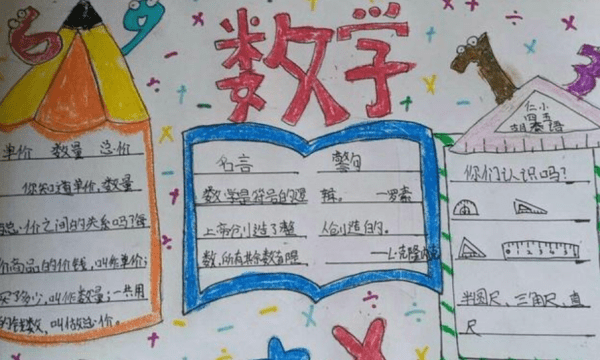 数学
单价 数量 总价
你知道单价、数量
总价之间的关系吗?每
商品的价钱,叫做单价;
买了多少,叫做数量;一共用
的钱数,叫做总价。
名言 警句
数学是符号的逻辑。—罗素
上帝创造了整 人创造的。
数,所有其余数 —L·克隆内克
仁小
四五
胡泰语
你们认识吗?
半圆尺、三角尺、直
尺